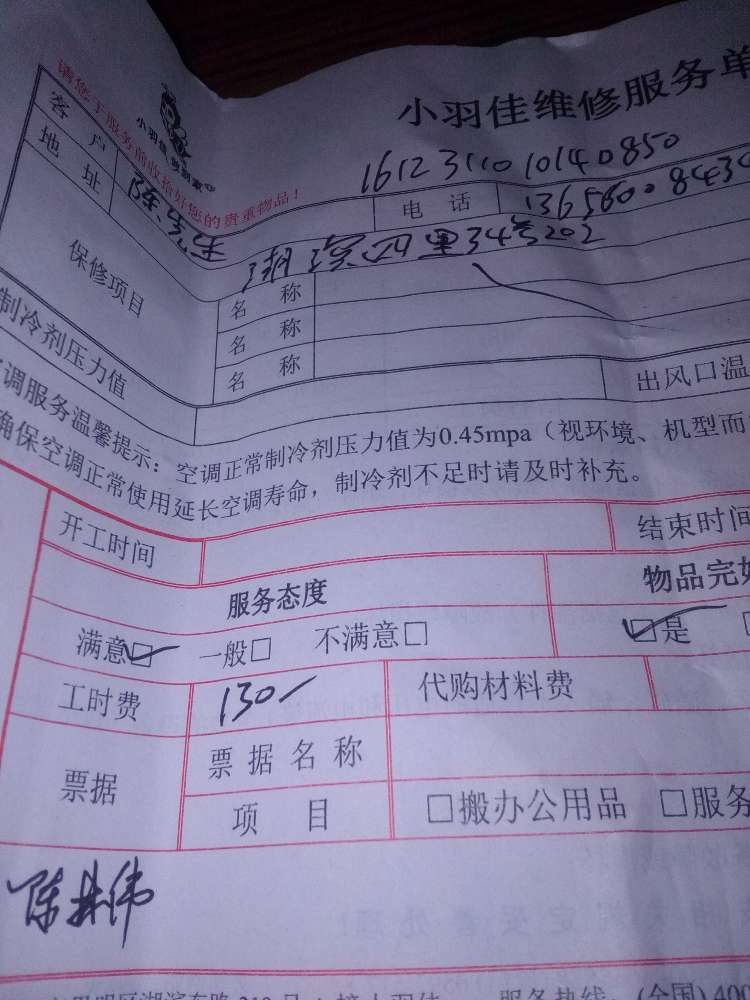 小羽佳维修服务单
请您于服务前收拾好您的贵重物品！
小羽佳
1612311010140850
客户
电话
13656008434
地址
湖滨四里34号202
保修项目
名称
名称
名称
制冷剂压力值
出风口温
调服务温馨提示：空调正常制冷剂压力值为0.45mpa（视环境、机型而
确保空调正常使用延长空调寿命，制冷剂不足时请及时补充。
开工时间
结束时间
服务态度
物品完好
满意☑ 一般□ 不满意□
☑是
工时费
130
代购材料费
票据
票据名称
项目
□搬办公用品 □服务